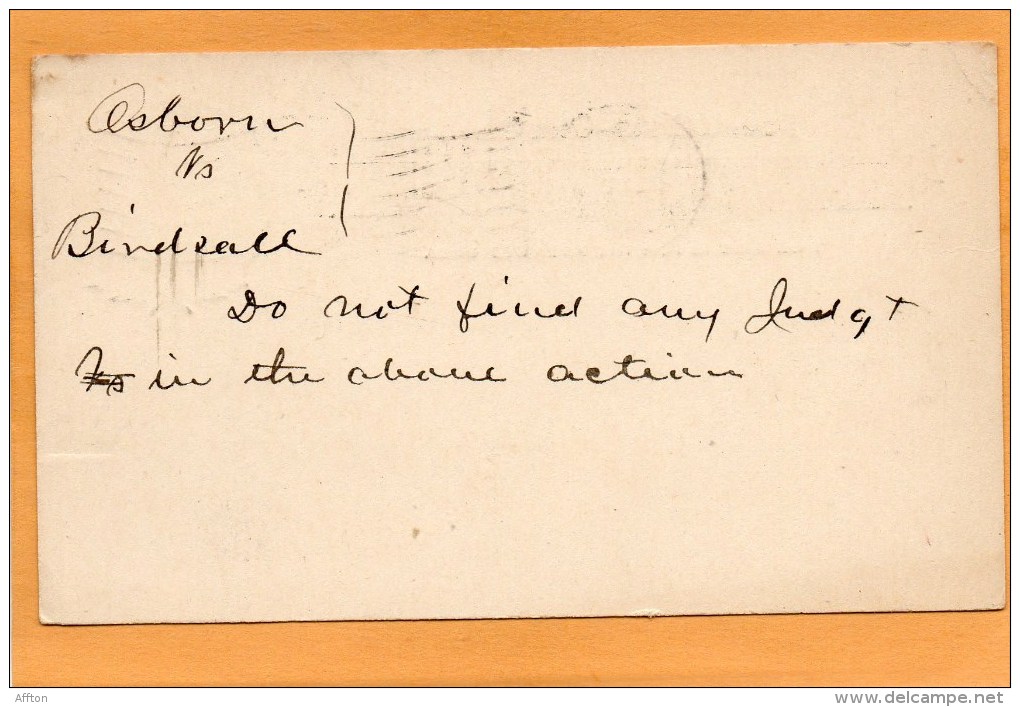 Osborn
Vs
Birdsall
Do not find any Judgt
in the above action
Affton
www.delcampe.net